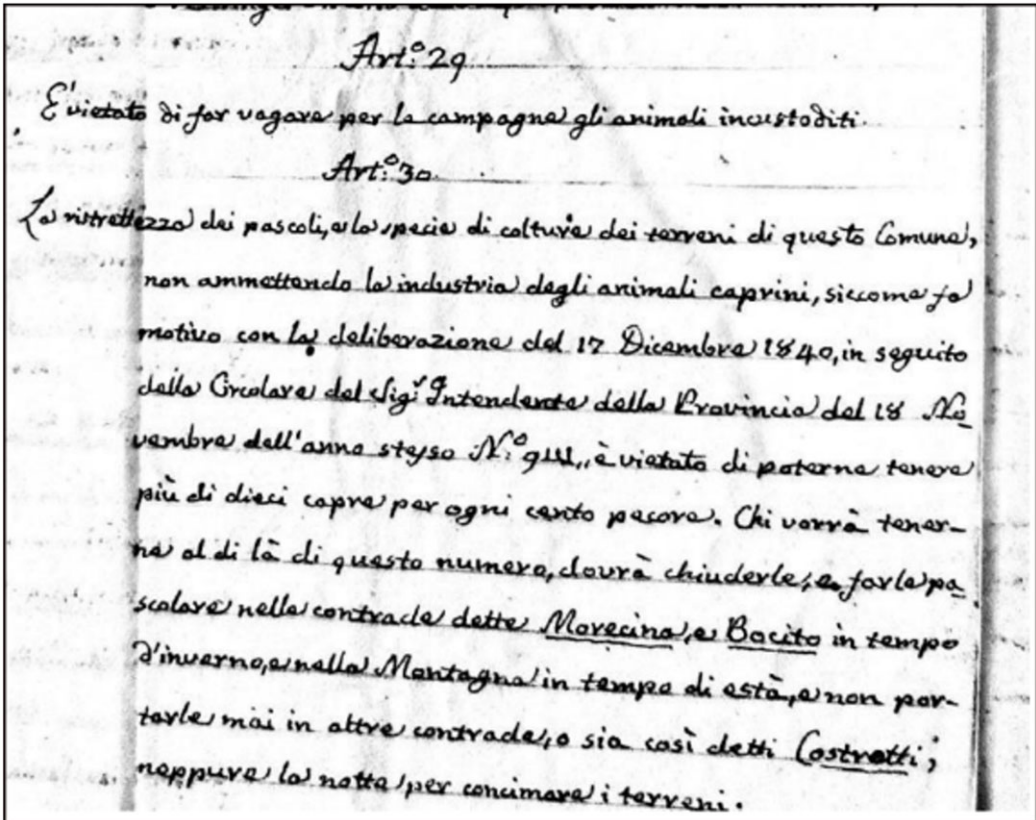 Art.º 29
E' vietato di far vagare per la campagna gli animali incustoditi.
Art.º 30
La ristrettezza dei pascoli, e la specie di colture dei terreni di questo Comune,
non ammettendo la industria degli animali caprini, siccome fa
motivo con la deliberazione del 17 Dicembre 1840, in seguito
della Circolare del Sig.r Intendente della Provincia del 18 No
vembre dell'anno stesso N.º è vietato di poterne tenere
più di dieci capre per ogni cento pecore. Chi vorrà tener-
ne al di là di questo numero, dovrà chiuderle, e farle pa
scolare nelle contrade dette Morecine, e Bocito in tempo
d'inverno, e nella Montagna in tempo di està, e non por-
tarle mai in altre contrade, o sia così detti Costretti;
neppure la notte per concimare i terreni.